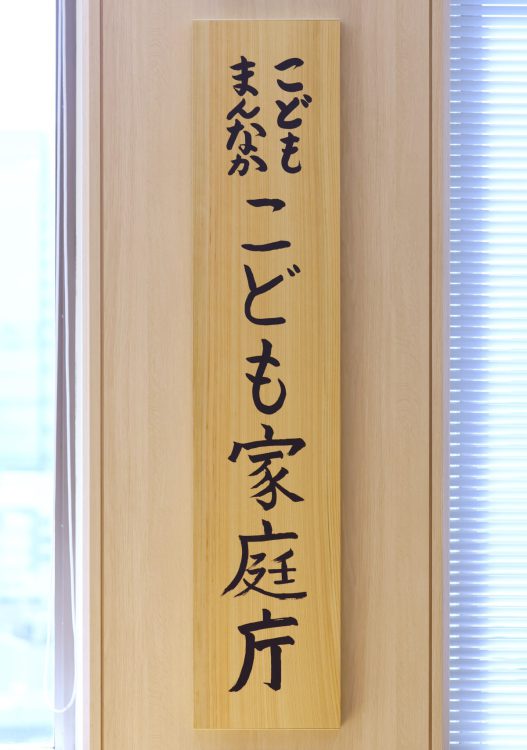 こども
まんなか
こども家庭庁